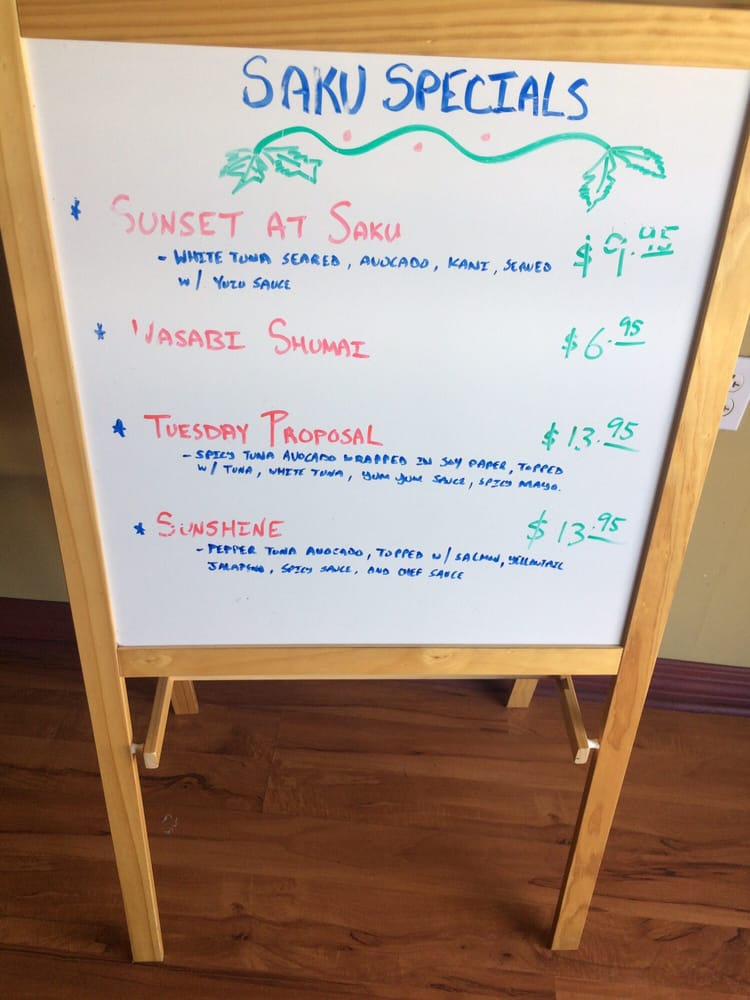 SAKU SPECIALS
* SUNSET AT SAKU $9.95
- WHITE TUNA SEARED, AVOCADO, KANI, SERVED
W/ YUZU SAUCE
* WASABI SHUMAI $6.95
* TUESDAY PROPOSAL $13.95
- SPICY TUNA AVOCADO WRAPPED IN SOY PAPER, TOPPED
W/ TUNA, WHITE TUNA, YUM YUM SAUCE, SPICY MAYO.
* SUNSHINE $13.95
- PEPPER TUNA AVOCADO, TOPPED W/ SALMON, YELLOWTAIL
JALAPENO, SPICY SAUCE, AND CHEF SAUCE